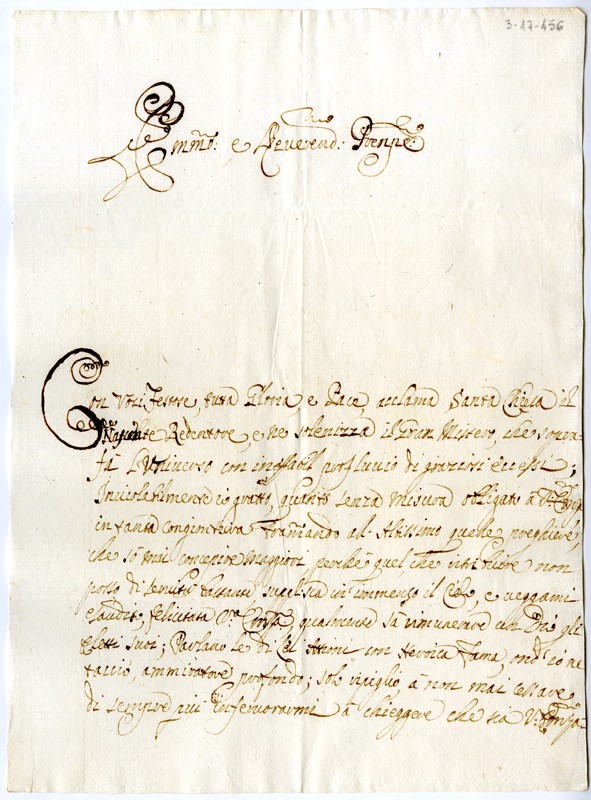 3-17-456
Emmo: e Reverend:mo Prenpe:
Con Voci festose, tutta Gloria e Pace, acclama Santa Chiesa il
Nascente Redentore, e ne solenizza il Gran Mistero, che
fà l'Universo con ineffabil profluvio di graziosi eccessi;
Inviolabilmente io grato, quanto senza misura obligato à V.ra Emza
in tanta congiontura tramando al Altissimo quelle preghiere,
che sò mai concepire maggiori perche quel, che retribuire non
posso di servitù bastante suplisca un immenso il Cielo, e veggami
esaudito felicitata V.ra Emza, qualmente sà rimunerare un Dio gli
Eletti suoi; Parlano le di Lei Attioni con Heroica Fama, ond'io ne
taccio, ammiratore profondo; sol ripiglio, à non mai cessare
di sempre più Infervorarmi à chieggere che sia V.ra Emza